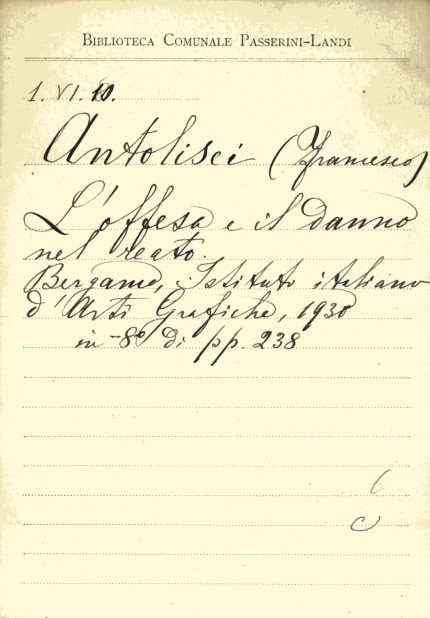 BIBLIOTECA COMUNALE PASSERINI-LANDI
1. VI. 10.
Antolisei (Francesco)
L'offesa e il danno
nel reato.
Bergamo, Istituto italiano
d'Arti Grafiche, 1930
in-8º di pp. 238